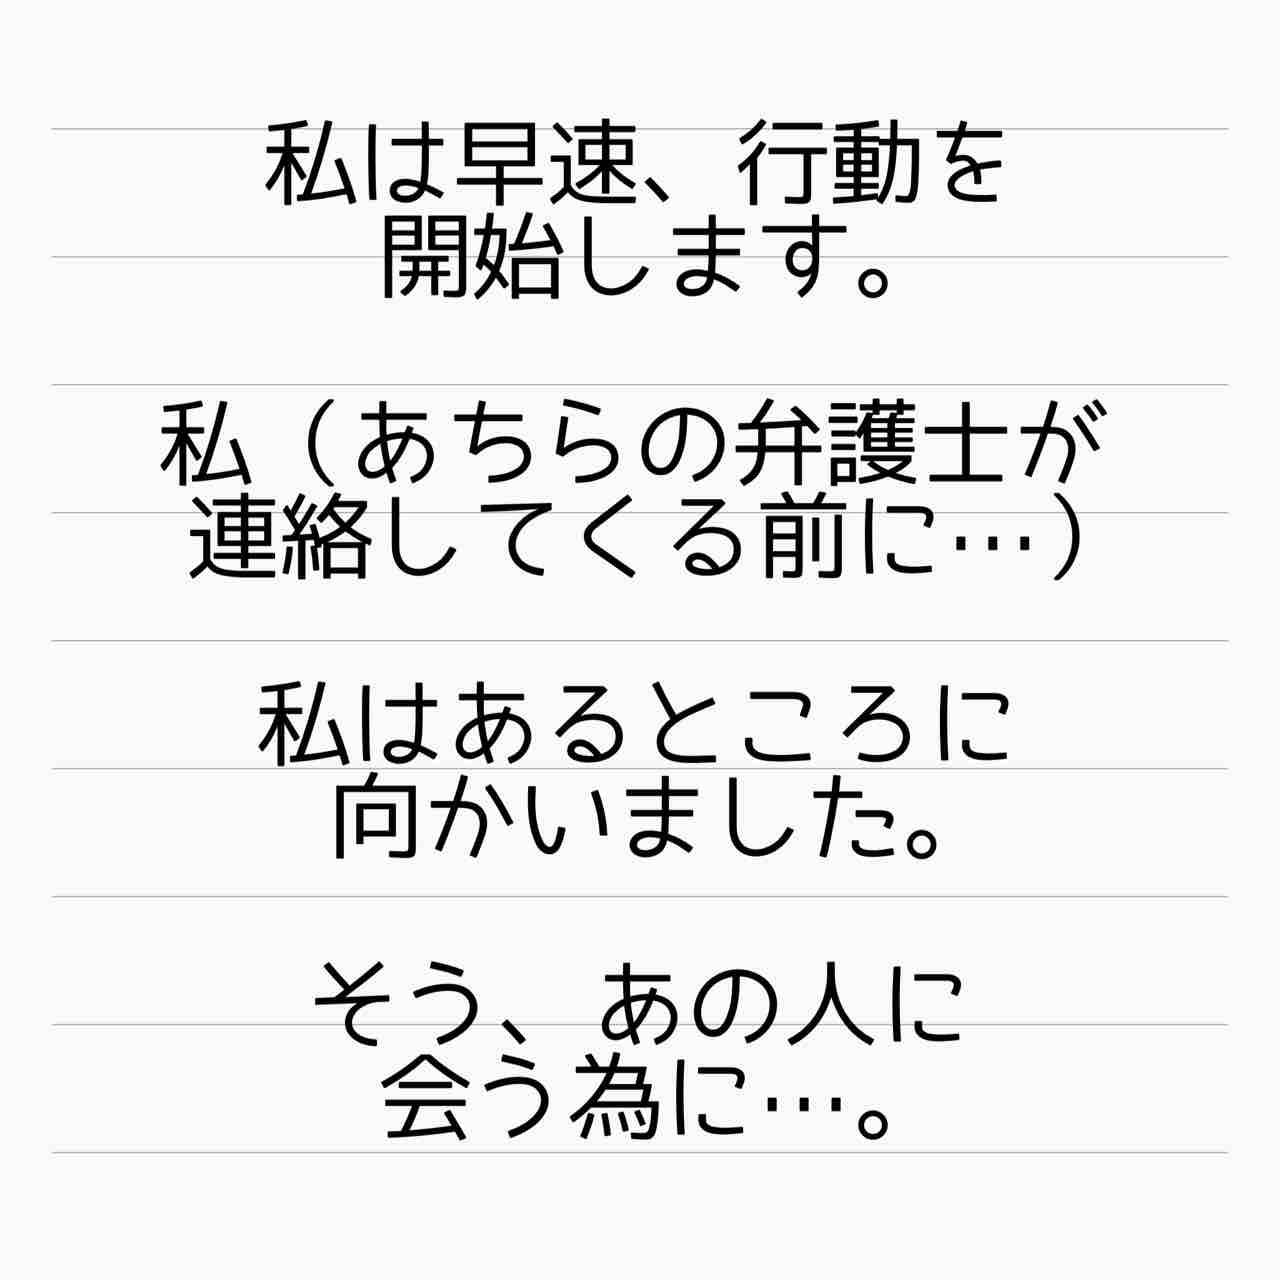 私は早速、行動を
開始します。
私（あちらの弁護士が
連絡してくる前に…）
私はあるところに
向かいました。
そう、あの人に
会う為に…。